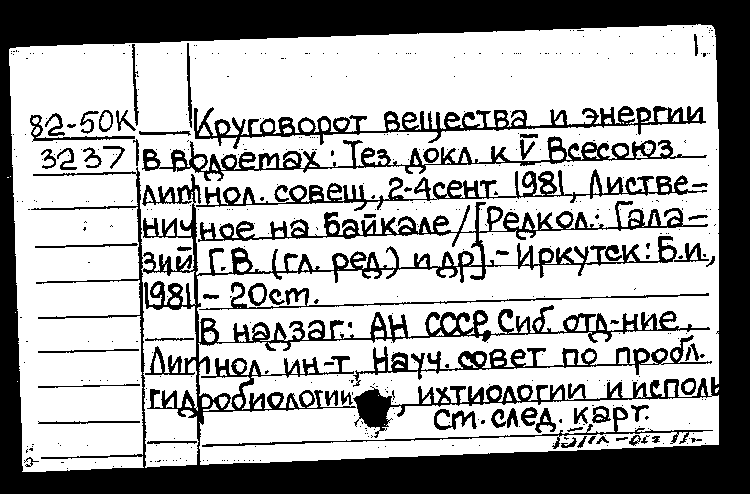 1.
82-50К Круговорот вещества и энергии
3237 в водоемах: Тез. докл. к V Всесоюз.
лимнол. совещ., 2-4 сент. 1981, Листве-
ничное на Байкале/[Редкол.: Гала-
зий Г.В. (гл. ред.) и др].- Иркутск: Б.и.,
1981 - 20 см.
В надзаг.: АН СССР, Сиб. отд-ние,
Лимнол. ин-т, Науч. совет по пробл.
гидробиологии, ихтиологии и исполь
см. след. карт.